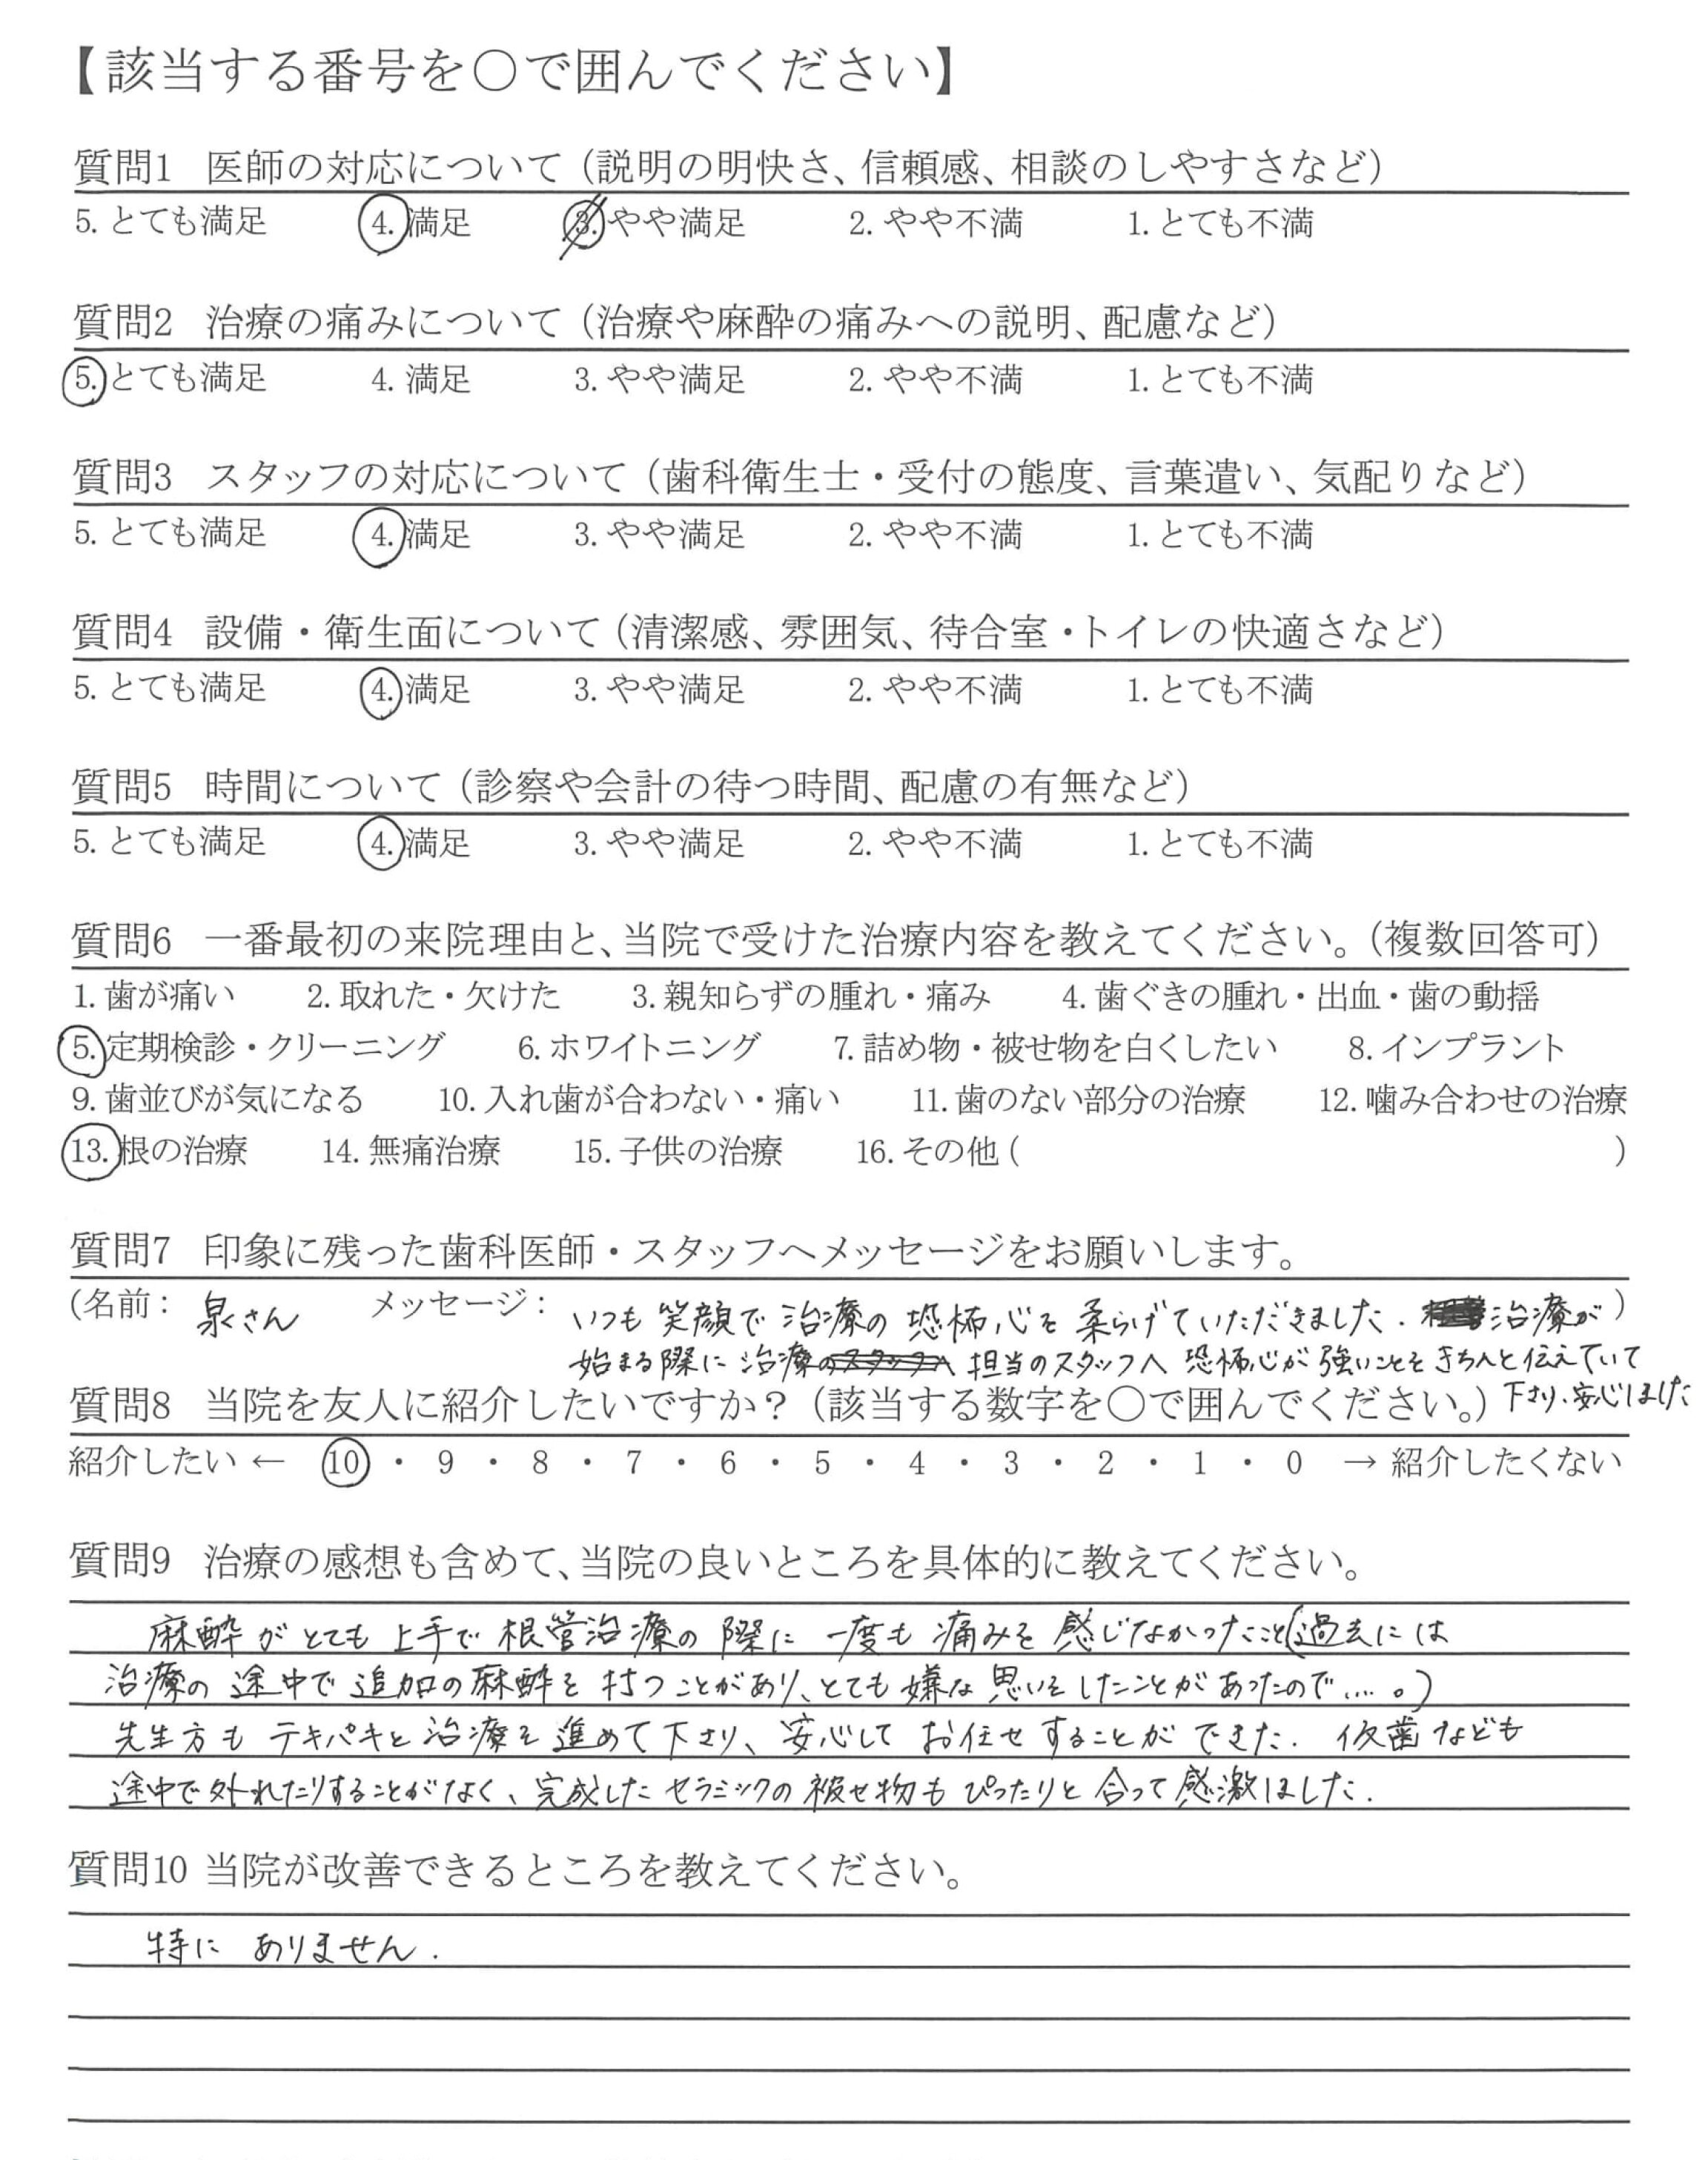 【該当する番号を〇で囲んでください】
質問1 医師の対応について（説明の明快さ、信頼感、相談のしやすさなど）
5. とても満足 4. 満足 3. やや満足 2. やや不満 1. とても不満
質問2 治療の痛みについて（治療や麻酔の痛みへの説明、配慮など）
5. とても満足 4. 満足 3. やや満足 2. やや不満 1. とても不満
質問3 スタッフの対応について（歯科衛生士・受付の態度、言葉遣い、気配りなど）
5. とても満足 4. 満足 3. やや満足 2. やや不満 1. とても不満
質問4 設備・衛生面について（清潔感、雰囲気、待合室・トイレの快適さなど）
5. とても満足 4. 満足 3. やや満足 2. やや不満 1. とても不満
質問5 時間について（診察や会計の待つ時間、配慮の有無など）
5. とても満足 4. 満足 3. やや満足 2. やや不満 1. とても不満
質問6 一番最初の来院理由と、当院で受けた治療内容を教えてください。（複数回答可）
1. 歯が痛い 2. 取れた・欠けた 3. 親知らずの腫れ・痛み 4. 歯ぐきの腫れ・出血・歯の動揺
5. 定期検診・クリーニング 6. ホワイトニング 7. 詰め物・被せ物を白くしたい 8. インプラント
9. 歯並びが気になる 10. 入れ歯が合わない・痛い 11. 歯のない部分の治療 12. 噛み合わせの治療
13. 根の治療 14. 無痛治療 15. 子供の治療 16. その他 ( )
質問7 印象に残った歯科医師・スタッフへメッセージをお願いします。
(名前： 泉さん メッセージ： いつも笑顔で治療の恐怖心を柔らげていただきました. 治療が )
始まる際に治療のスタッフへ 担当のスタッフへ 恐怖心が強いことをきちんと伝えていて
下さり、安心しました
質問8 当院を友人に紹介したいですか？（該当する数字を〇で囲んでください。）
紹介したい ← 10 ・ 9 ・ 8 ・ 7 ・ 6 ・ 5 ・ 4 ・ 3 ・ 2 ・ 1 ・ 0 → 紹介したくない
質問9 治療の感想も含めて、当院の良いところを具体的に教えてください。
麻酔がとても上手で根管治療の際に一度も痛みを感じなかったこと(過去には
治療の途中で追加の麻酔を打つことがあり、とても嫌な思いをしたことがあったので…。)
先生方もテキパキと治療を進めて下さり、安心してお任せすることができた. 仮歯なども
途中で外れたりすることがなく、完成したセラミックの被せ物もぴったりと合って感激しました.
質問10 当院が改善できるところを教えてください。
特にありません.